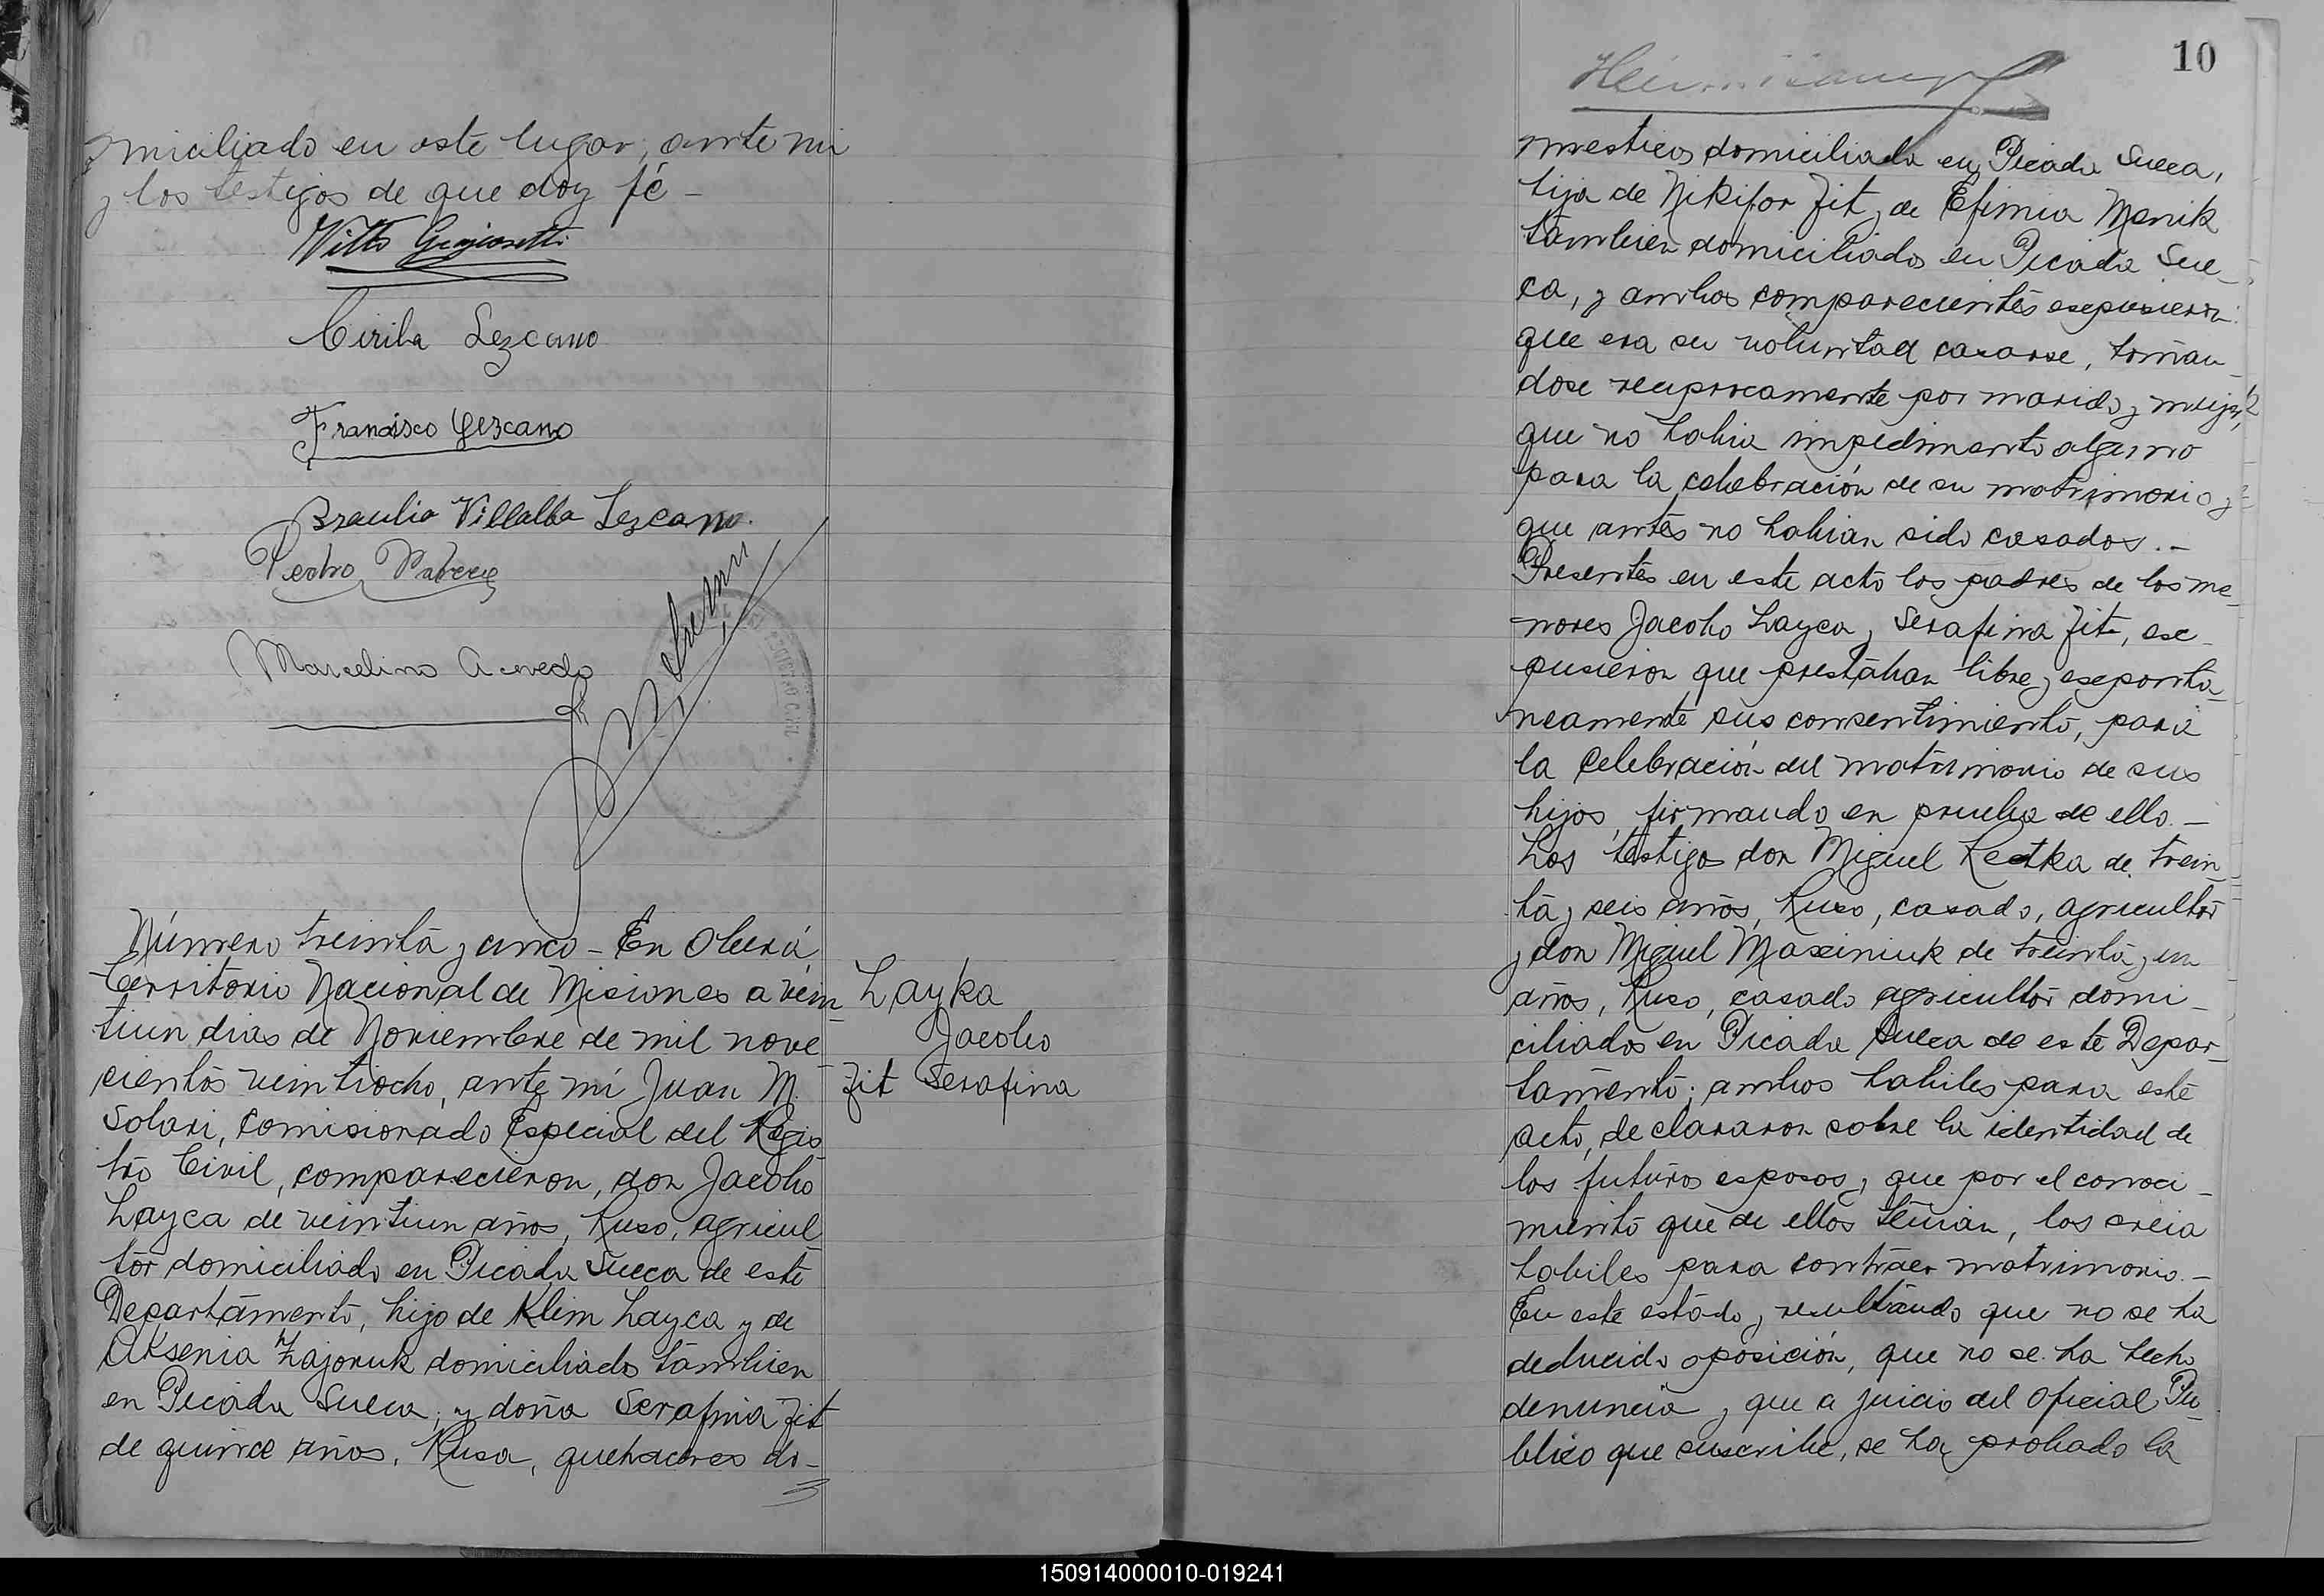 miciliado en este lugar; ante mi
y los testigos de que doy fé -
Cirila Lezcano
Francisco Lezcano
Braulia Villalba Lezcano.
Pedro
Marcelino Acevedo
Número treinta y cinco - En Oberá
Territorio Nacional de Misiones a vein
tiun dias de Noviembre de mil nove
cientos veintiocho, ante mí Juan M.
Solari, Comisionado Especial del Regis
tro Civil, comparecieron, don Jacobo
Layca de veintiun años, Ruso, agricul
tor domiciliado en Picada Sueca de este
Departamento, hijo de Klim Layca y de
Aksenia Zajoruk domiciliados tambien
en Picada Sueca; y doña Serafina Zit
de quince años, Rusa, quehaceres do-
Layka
Jacobo
Zit Serafina
10
mesticos domiciliada en Picada Sueca,
hija de Nikifor Zit y de Efimia Menik
tambien domiciliados en Picada Sue-
ca, y ambos comparecientes expusieron:
que era su voluntad casarse, toman-
dose reciprocamente por marido y mujer,
que no habia impedimento alguno
para la celebración de su matrimonio y
que antes no habian sido casados. -
Presentes en este acto los padres de los me-
nores Jacobo Layca y Serafina Zit, ex-
pusieron que prestaban libre y esponta-
neamente sus consentimiento, para
la celebración del matrimonio de sus
hijos, firmando en prueba de ello. -
Los testigos don Miguel Kestka de trein-
ta y seis años, Ruso, casado, agricultor
y don Miguel Maxiniuk de treinta y un
años, Ruso, casado agricultor domi-
ciliados en Picada Sueca de este Depar-
tamento; ambos habiles para este
acto, declararon sobre la identidad de
los futuros esposos y que por el conoci-
miento que de ellos tenian, los creia
habiles para contraer matrimonio. -
En este estado y resultando que no se ha
deducido oposición, que no se ha hecho
denuncia y que a juicio del Oficial Pu-
blico que suscribe, se ha probado la
150914000010-019241